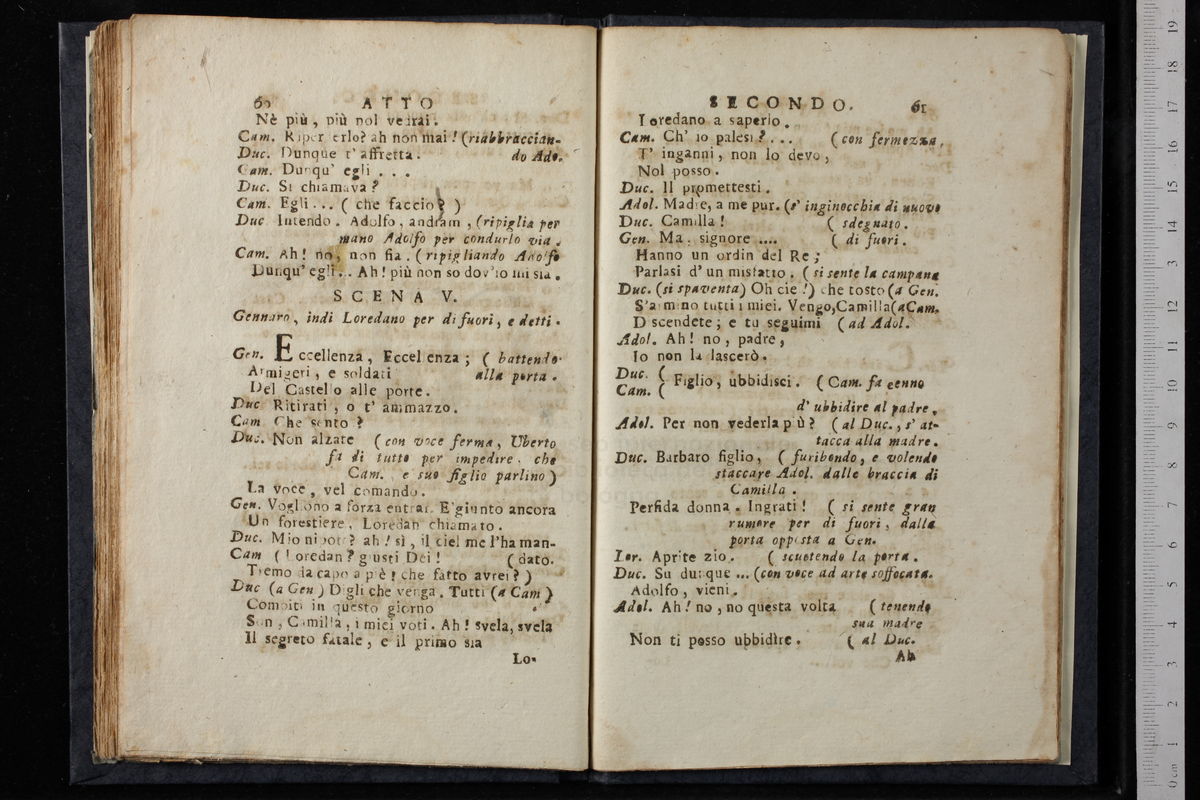 60 ATTO
Nè più, più nol vedrai.
Cam. Riperderlo? ah non mai! (riabbraccian-
Duc. Dunque t'affretta. do Ado.
Cam. Dunqu' egli . . .
Duc. Si chiamava?
Cam. Egli... ( che faccio? )
Duc. Intendo. Adolfo, andiam, (ripiglia per
mano Adolfo per condurlo via.
Cam. Ah! no, non fia. (ripigliando Adolfo
Dunqu' egli... Ah! più non so dov'io mi sia.
SCENA V.
Gennaro, indi Loredano per di fuori, e detti.
Gen. Eccellenza, Eccellenza; ( battendo
Armigeri, e soldati alla porta.
Del Castello alle porte.
Duc. Ritirati, o t' ammazzo.
Cam. Che sento?
Duc. Non alzate (con voce ferma, Uberto
fa di tutto per impedire, che
Cam., e suo figlio parlino)
La voce, vel comando.
Gen. Vogliono a forza entrar. E' giunto ancora
Un forestiere, Loredan chiamato.
Duc. Mio nipote? ah! sì, il ciel me l'ha man-
Cam. (Loredan? giusti Dei! (dato.
Tremo da capo a piè! che fatto avrei?)
Duc. (a Gen.) Digli che venga. Tutti (a Cam.)
Compiti in questo giorno
Son, Camilla, i miei voti. Ah! svela, svela
Il segreto fatale, e il primo sia
Lo-
SECONDO. 61
Loredano a saperlo.
Cam. Ch' io palesi?... (con fermezza,
T' inganni, non lo devo,
Nol posso.
Duc. Il promettesti.
Adol. Madre, a me pur. (s' inginocchia di nuovo
Duc. Camilla! ( sdegnato.
Gen. Ma, signore .... ( di fuori.
Hanno un ordin del Re;
Parlasi d' un misfatto. (si sente la campana
Duc. (si spaventa) Oh cie!) che tosto (a Gen.
S'armino tutti i miei. Vengo, Camilla (a Cam.
Discendete; e tu seguimi (ad Adol.
Adol. Ah! no, padre,
Io non la lascerò.
Duc. (
Cam. ( Figlio, ubbidisci. (Cam. fa cenno
d' ubbidire al padre,
Adol. Per non vederla più? (al Duc., s' at-
tacca alla madre.
Duc. Barbaro figlio, (furibondo, e volendo
staccare Adol. dalle braccia di
Camilla.
Perfida donna. Ingrati! ( si sente gran
rumore per di fuori, dalla
porta opposta a Gen.
Lor. Aprite zio. (scuotendo la porta.
Duc. Su dunque ... (con voce ad arte soffocata.
Adolfo, vieni.
Adol. Ah! no, no questa volta (tenendo
sua madre
Non ti posso ubbidire. (al Duc.
Ah